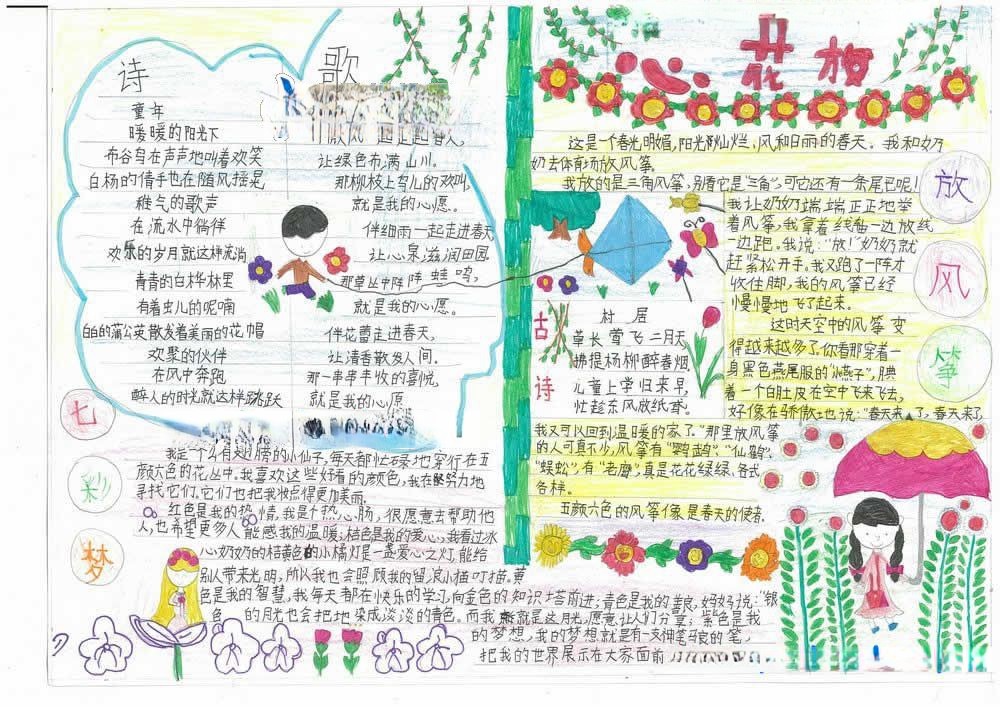 诗 歌
童年
暖暖的阳光下
布谷鸟在声声地叫着欢笑
白杨的倩手也在随风摇晃
稚气的歌声
在流水中徜徉
欢乐的岁月就这样流淌
青青的白桦林里
有着虫儿的呢喃
白白的蒲公英散发着美丽的花帽
欢聚的伙伴
在风中奔跑
醉人的时光就这样跳跃
让绿色布满山川。
那柳枝上鸟儿的欢叫,
就是我的心愿。
伴细雨一起走进春天
让心泉滋润田园
那草丛中阵阵蛙鸣,
就是我的心愿。
伴花蕾走进春天,
让清香散发人间。
那一串串丰收的喜悦,
就是我的心愿
七
彩
梦
我是一个有翅膀的小仙子,每天都忙碌地穿行在五
颜六色的花丛中。我喜欢这些好看的颜色,我在努力地
寻找它们,它们也把我妆点得更加美丽.
红色是我的热情,我是个热心肠,很愿意去帮助他
人,也希望更多人能感我的温暖;桔色是我的爱心,我看过冰
心奶奶的桔黄色的小橘灯是一盏爱心之灯,能给
别人带来光明,所以我也会照顾我的留浪小猫叮当。黄
色是我的智慧,我每天都在快乐的学习,向金色的知识塔前进;青色是我的善良,妈妈说:"银
色的月光也会把地染成淡淡的青色。而我就是这月光,愿意让人们分享;紫色是我
的梦想,我的梦想就是有一支神笔马良的笔,
把我的世界展示在大家面前
心花放
这是一个春光明媚,阳光灿烂,风和日丽的春天。我和奶
奶去体育场放风筝。
我放的是三角风筝,别看它是"三角",可它还有一条尾巴呢!
我让奶奶端端正正地举
着风筝,我拿着线轴一边放线
一边跑。我说:"放!"奶奶就
赶紧松开手。我又跑了一阵才
收住脚,我的风筝已经
慢慢地飞了起来。
这时天空中的风筝变
得越来越多了,你看那穿着一
身黑色燕尾服的"小燕子",腆
着一个白肚皮在空中飞来飞去,
好像在骄傲地说:"春天来了,春天来了,
我又可以回到温暖的家了。"那里放风筝
的人可真不少,风筝有"鹦鹉"、"仙鹤"、
"蜈蚣",有"老鹰",真是花花绿绿、各式
各样。
五颜六色的风筝像是春天的使者.
放
风
筝
古
诗
村居
草长莺飞二月天
拂提杨柳醉春烟
儿童上学归来早,
忙趁东风放纸鸢。